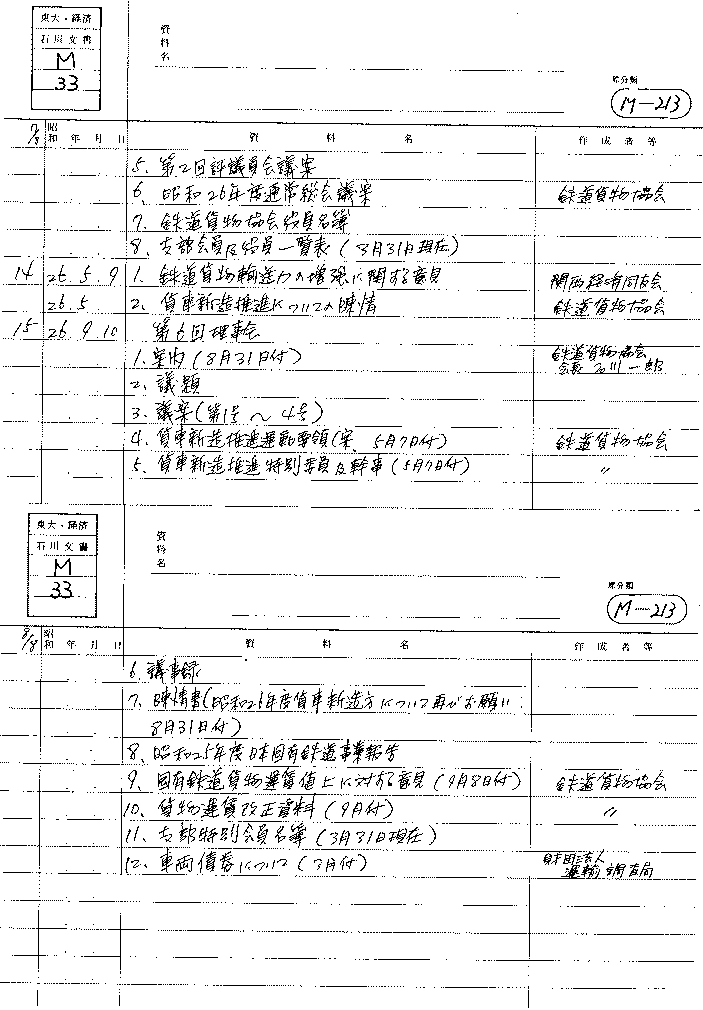 東大・経済
石川文書
M
33
資料名
原分類
M-213
7/8 昭和 年 月 日 資料名 作成者等
5. 第2回評議員会議案
6. 昭和26年度通常総会議案 鉄道貨物協会
7. 鉄道貨物協会役員名簿
8. 支部会員及役員一覧表(3月31日現在)
14 26. 5. 9 1. 鉄道貨物輸送力の増強に関する意見 関西経済同友会
26. 5 2. 貨車新造推進についての陳情 鉄道貨物協会
15 26. 9. 10 第6回理事会
1. 案内(8月31日付) 鉄道貨物協会
会長 石川一郎
2. 議題
3. 議案(第1号~4号)
4. 貨車新造推進運動要領(案、5月7日付) 鉄道貨物協会
5. 貨車新造推進特別委員及幹事(5月7日付) 〃
東大・経済
石川文書
M
33
資料名
原分類
M-213
8/8 昭和 年 月 日 資料名 作成者等
6. 議事録
7. 陳情書(昭和26年度貨車新造方について再びお願い
8月31日付)
8. 昭和25年度日本国有鉄道事業報告
9. 国有鉄道貨物運賃値上に対する意見(9月8日付) 鉄道貨物協会
10. 貨物運賃改正資料(9月付) 〃
11. 支部特別会員名簿(3月31日現在)
12. 車両債券について(3月付) 財団法人
運輸調査局